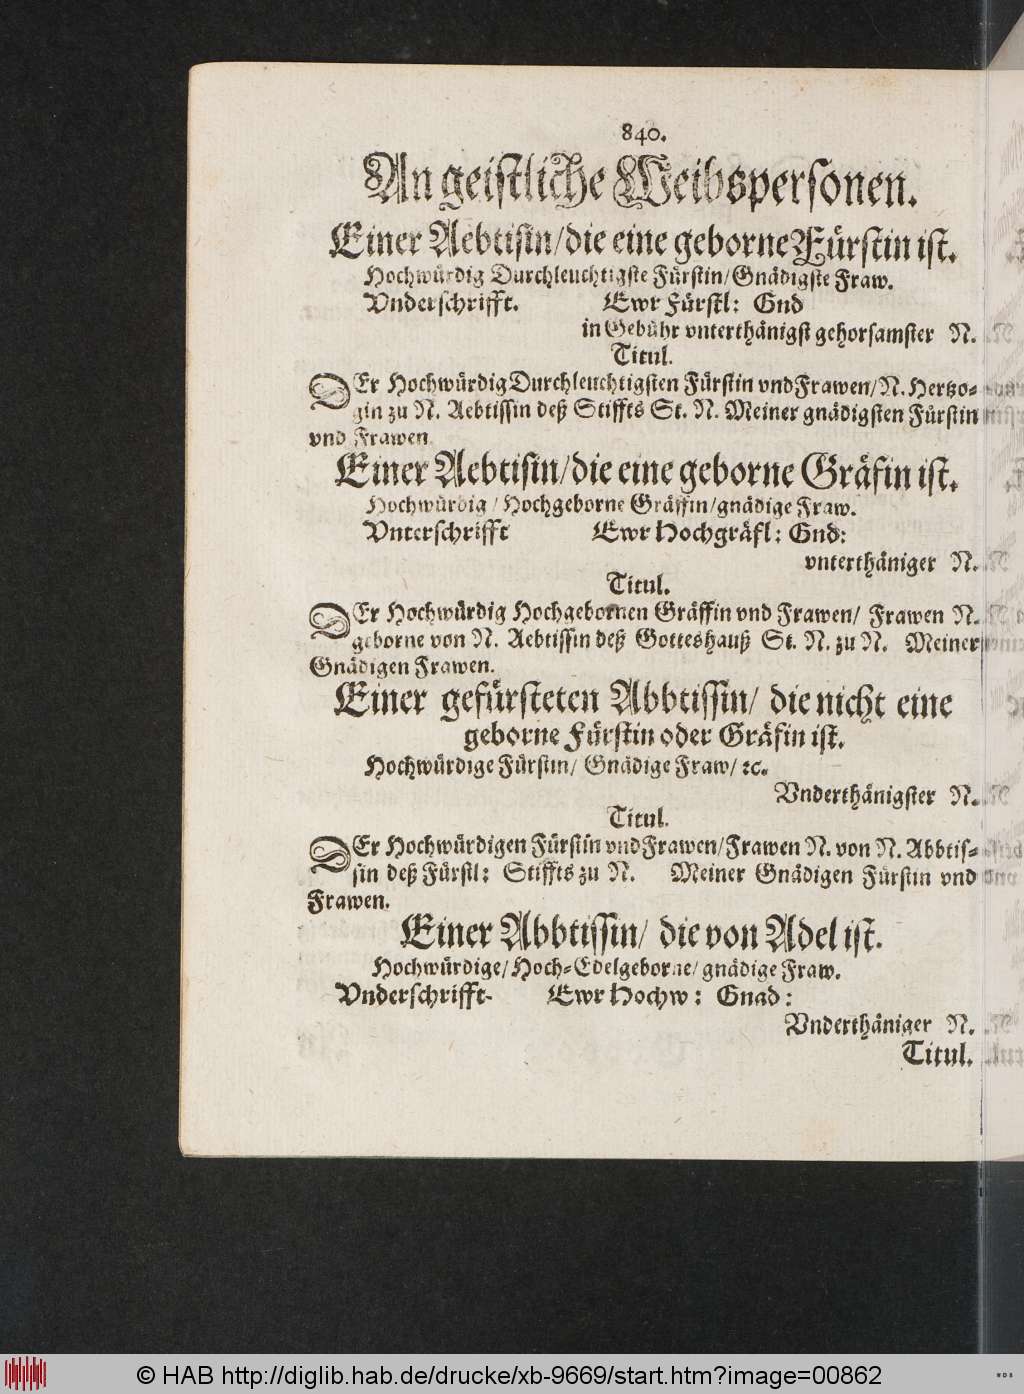 840.
An geistliche Weibspersonen.
Einer Aebtisin/die eine geborne Fürstin ist.
Hochwürdig Durchleuchtigste Fürstin/Gnädigste Fraw.
Vnderschrifft. Ewr Fürstl: Gnd
in Gebühr vnterthänigst gehorsamster N.
Titul.
DEr Hochwürdig Durchleuchtigsten Fürstin vnd Frawen/N. Hertzo-
gin zu N. Aebtissin deß Stiffts St. N. Meiner gnädigsten Fürstin
vnd Frawen
Einer Aebtisin/die eine geborne Gräfin ist.
Hochwürdig / Hochgeborne Gräffin/gnädige Fraw.
Vnterschrifft Ewr Hochgräfl: Gnd:
vnterthäniger N.
Titul.
DEr Hochwürdig Hochgebornen Gräffin vnd Frawen/ Frawen N.
geborne von N. Aebtissin deß Gotteshauß St. N. zu N. Meiner
Gnädigen Frawen.
Einer gefürsteten Abbtissin/ die nicht eine
geborne Fürstin oder Gräfin ist.
Hochwürdige Fürstin/ Gnädige Fraw/ ꝛc.
Vnderthänigster N.
Titul.
DEr Hochwürdigen Fürstin vnd Frawen/Frawen N. von N. Abbtis-
sin deß Fürstl: Stiffts zu N. Meiner Gnädigen Fürstin vnd
Frawen.
Einer Abbtissin/ die von Adel ist.
Hochwürdige/ Hoch-Edelgeborne/ gnädige Fraw.
Vnderschrifft- Ewr Hochw: Gnad:
Vnderthäniger N.
Titul.
© HAB http://diglib.hab.de/drucke/xb-9669/start.htm?image=00862